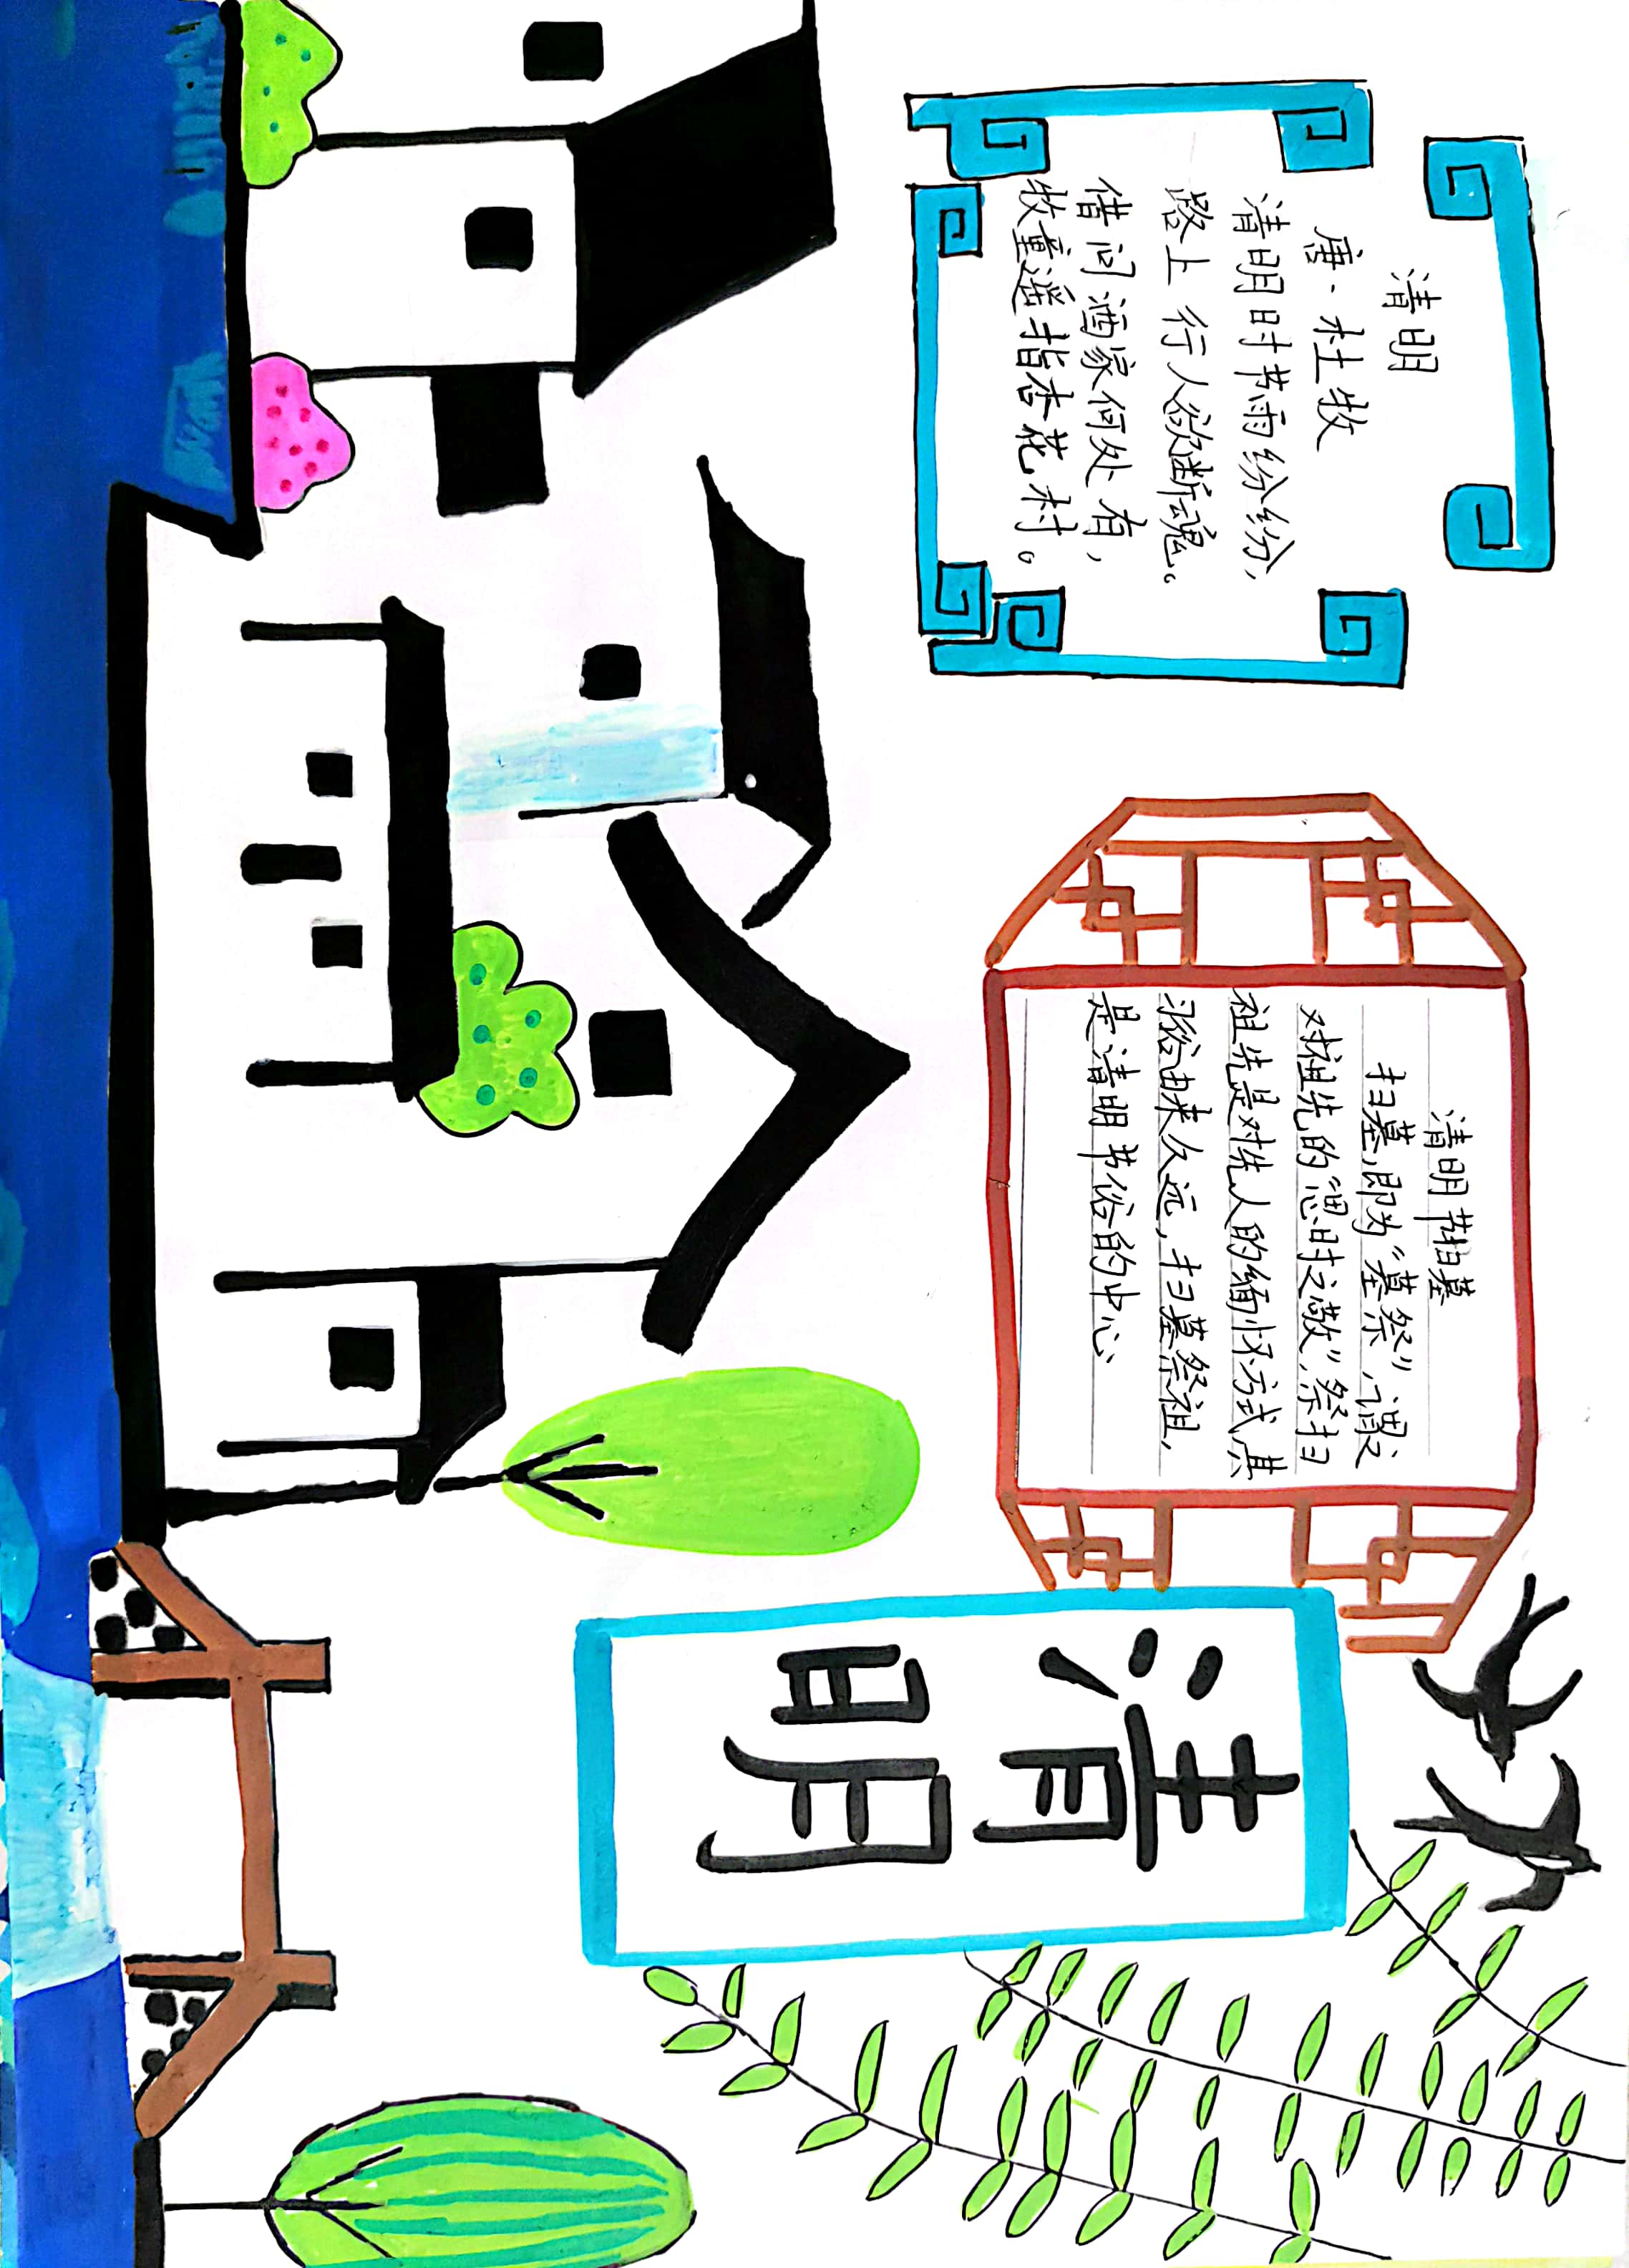 清明
唐·杜牧
清明时节雨纷纷，
路上行人欲断魂。
借问酒家何处有，
牧童遥指杏花村。
清明节扫墓
扫墓，即为“墓祭”，谓
对祖先的“思时之敬”，祭扫
祖先是对先人的缅怀方式，其
习俗由来久远，扫墓祭祖，
是清明节俗的中心
清
明